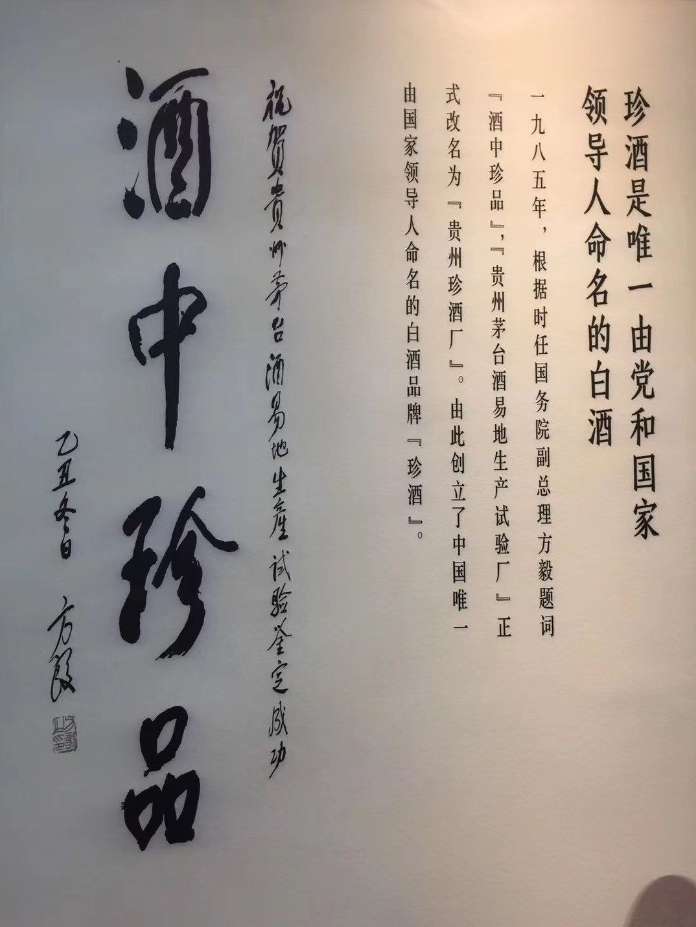 珍酒是唯一由党和国家
领导人命名的白酒
一九八五年，根据时任国务院副总理方毅题词
『酒中珍品』，『贵州茅台酒易地生产试验厂』正
式改名为『贵州珍酒厂』。由此创立了中国唯一
由国家领导人命名的白酒品牌『珍酒』。
祝贺贵州茅台酒易地生産试验鉴定成功
酒中珍品
乙丑冬日 方毅